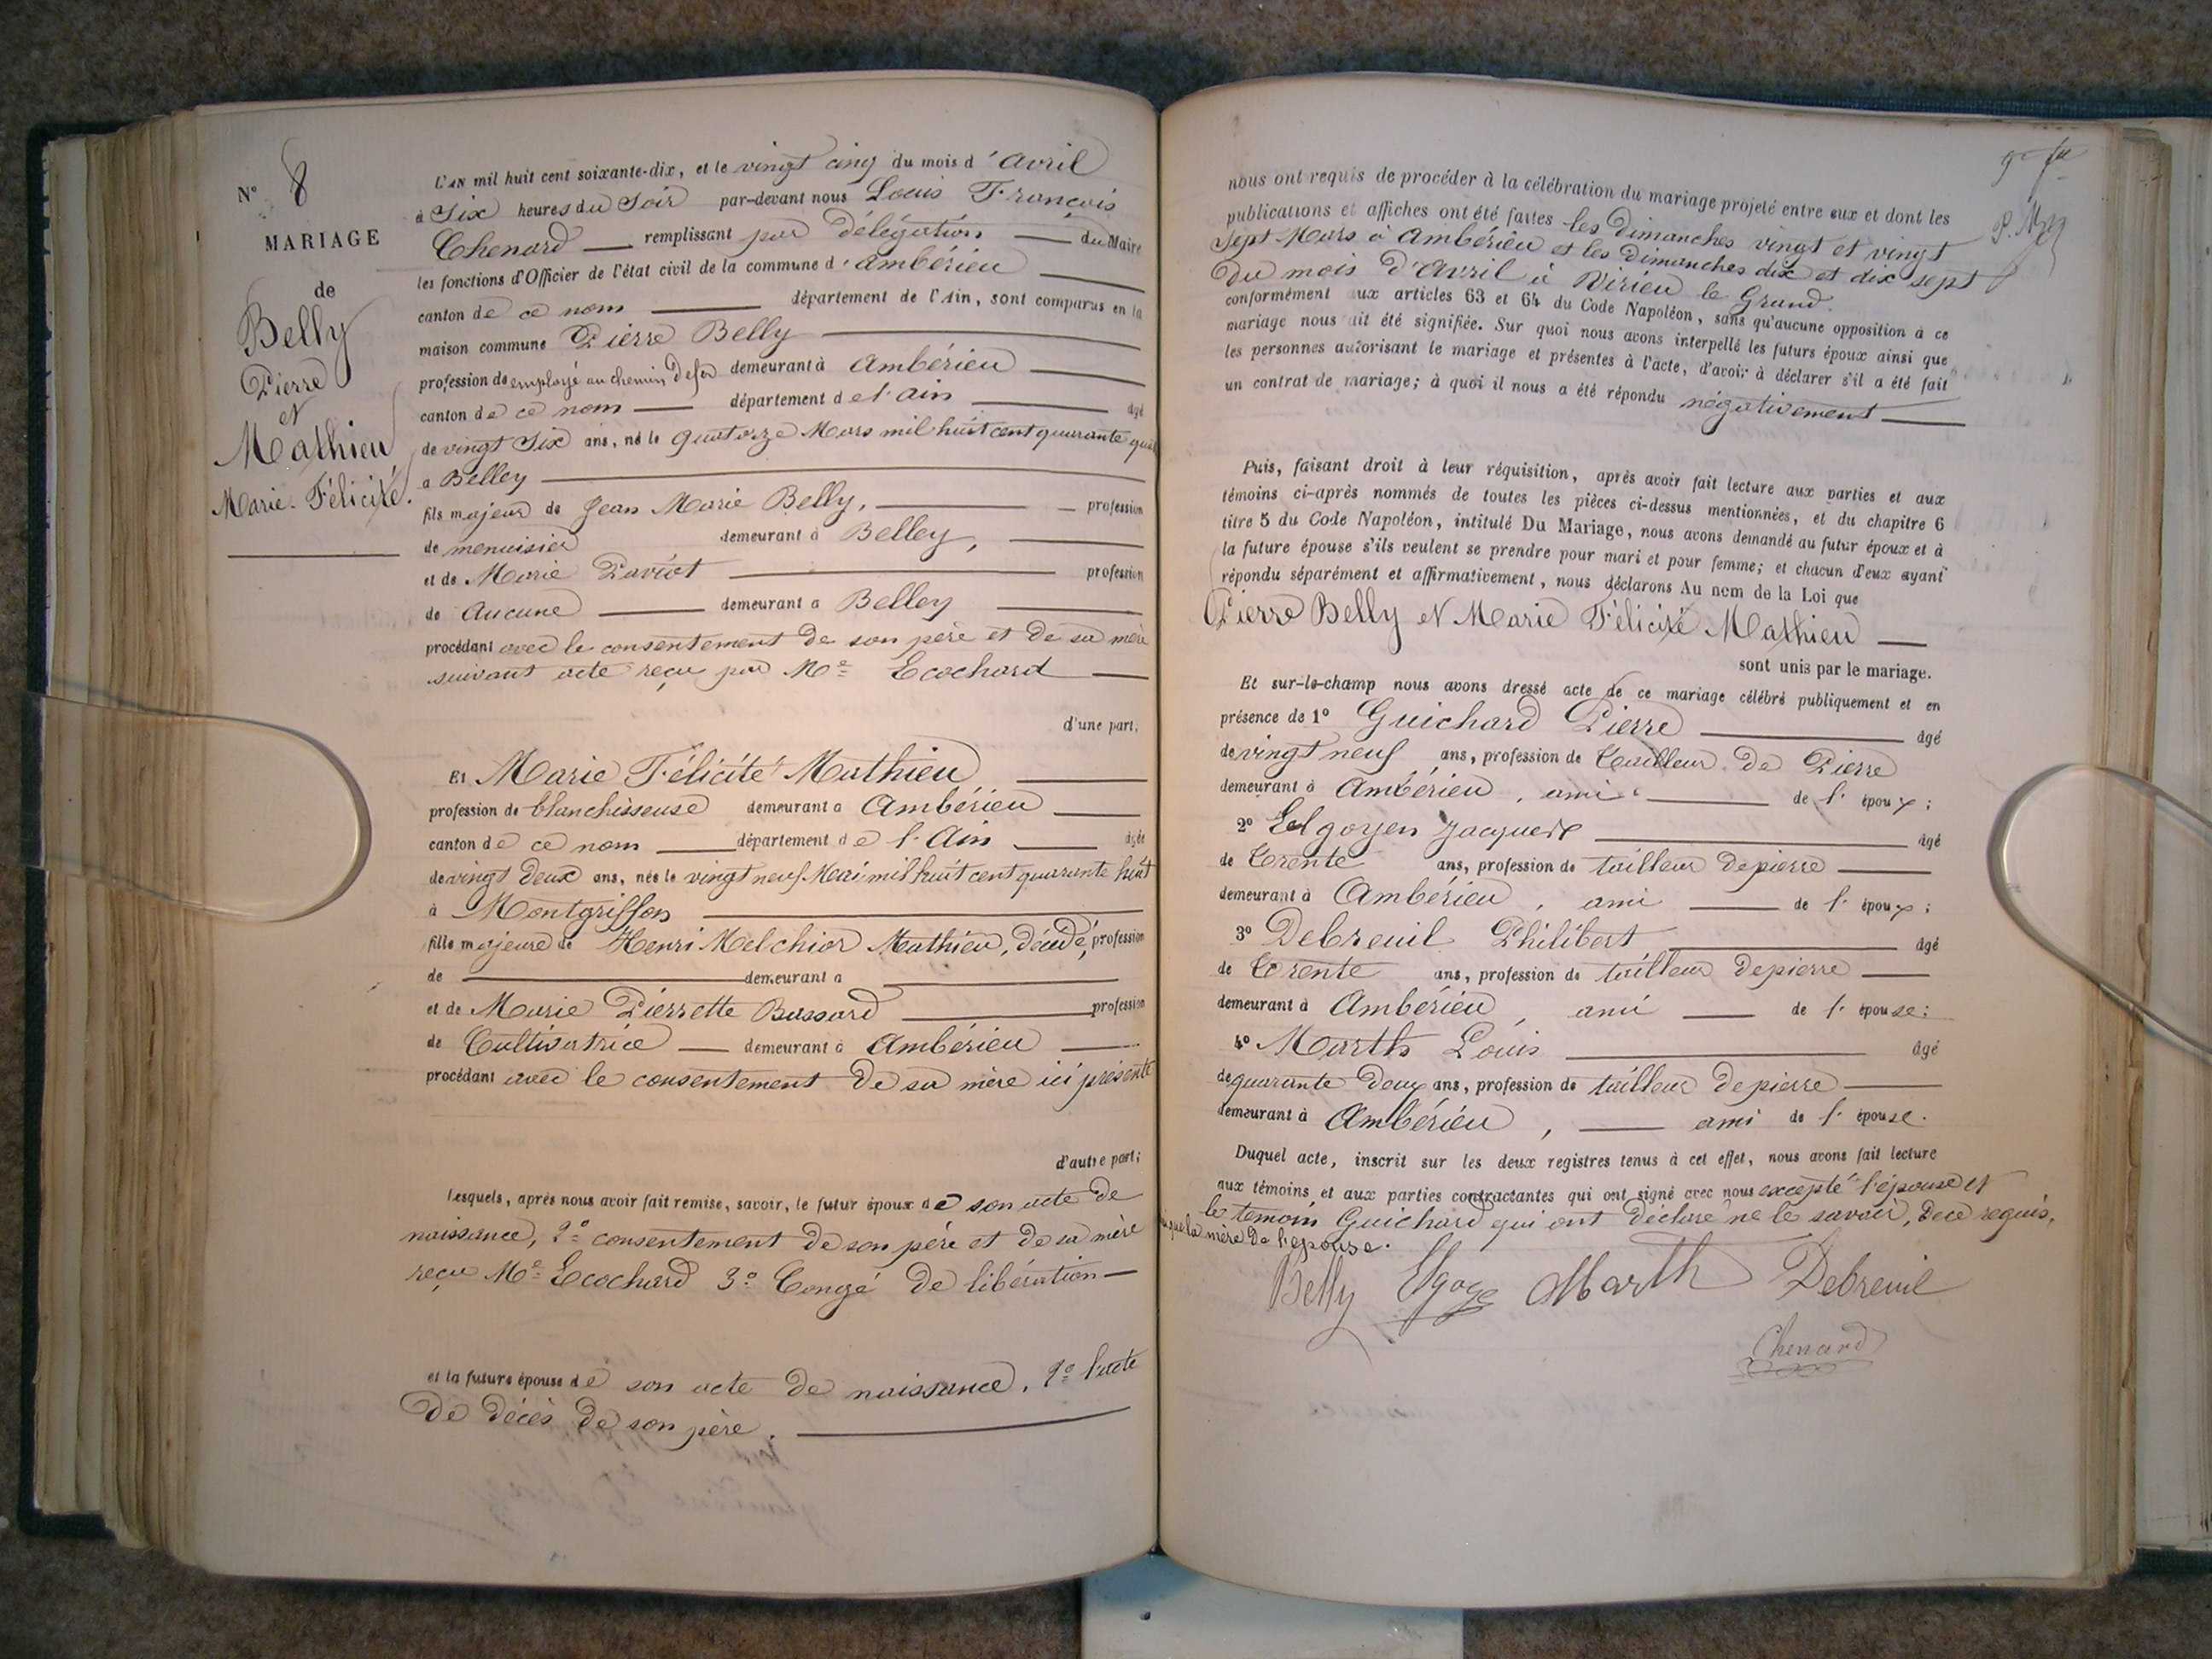 N° 8
MARIAGE
de
Belly
Pierre
et
Mathieu
Marie Félicité.
L'AN mil huit cent soixante-dix, et le vingt cinq du mois d'avril
à Six heures du Soir par-devant nous Louis François
Chenard remplissant par délégation du Maire
les fonctions d'Officier de l'état civil de la commune d'ambérieu
canton de ce nom département de l'Ain, sont comparus en la
maison commune Pierre Belly
profession de employé au chemin de fer demeurant à Ambérieu
canton de ce nom département de l'ain âgé
de vingt Six ans, né le quatorze Mars mil huit cent quarante quat
a Belley
fils majeur de Jean Marie Belly, profession
de menuisier demeurant à Belley,
et de Marie Paviot profession
de aucune demeurant a Belley
procédant avec le consentement de son père et de sa mère
suivant acte reçu par Me Ecochard
d'une part,
Et Marie Félicité Mathieu
profession de blanchisseuse demeurant a Ambérieu
canton de ce nom département de l'Ain âgée
de vingt deux ans, née le vingt neuf Mai mil huit cent quarante huit
à Montgriffon
fille majeure de Henri Melchior Mathieu, décédé, profession
de demeurant a
et de Marie Pierrette Bussard profession
de Cultivatrice demeurant à Ambérieu
procédant avec le consentement de sa mère ici présente
d'autre part;
Lesquels, après nous avoir fait remise, savoir, le futur époux de son acte de
naissance, 2° consentement de son père et de sa mère
reçu Me Ecochard 3° Congé de libération
et la future épouse de son acte de naissance, 2° l'acte
de décès de son père.
nous ont requis de procéder à la célébration du mariage projeté entre eux et dont les
publications et affiches ont été faites les Dimanches vingt et vingt
sept Mars à Ambérieu et les Dimanches dix et dix sept
du mois d'Avril à Virieu le Grand.
conformément aux articles 63 et 64 du Code Napoléon, sans qu'aucune opposition à ce
mariage nous ait été signifiée. Sur quoi nous avons interpellé les futurs époux ainsi que
les personnes autorisant le mariage et présentes à l'acte, d'avoir à déclarer s'il a été fait
un contrat de mariage; à quoi il nous a été répondu négativement
Puis, faisant droit à leur réquisition, après avoir fait lecture aux parties et aux
témoins ci-après nommés de toutes les pièces ci-dessus mentionnées, et du chapitre 6
titre 5 du Code Napoléon, intitulé Du Mariage, nous avons demandé au futur époux et à
la future épouse s'ils veulent se prendre pour mari et pour femme; et chacun d'eux ayant
répondu séparément et affirmativement, nous déclarons Au nom de la Loi que
Pierre Belly et Marie Félicité Mathieu
sont unis par le mariage.
Et sur-le-champ nous avons dressé acte de ce mariage célébré publiquement et en
présence de 1° Guichard Pierre âgé
de vingt neuf ans, profession de Tailleur de Pierre
demeurant à Ambérieu, ami de l'époux;
2° Elgoyen Jacques âgé
de trente ans, profession de tailleur de pierre
demeurant à Ambérieu, ami de l'époux;
3° Debreuil Philibert âgé
de trente ans, profession de tailleur de pierre
demeurant à Ambérieu, ami de l'épouse;
4° Marth Louis âgé
de quarante deux ans, profession de tailleur de pierre
demeurant à Ambérieu, ami de l'épouse.
Duquel acte, inscrit sur les deux registres tenus à cet effet, nous avons fait lecture
aux témoins et aux parties contractantes qui ont signé avec nous excepté l'épouse et
le temoin Guichard qui ont déclaré ne le savoir, de ce requis,
que la mère de l'epouse.
Belly Marth Debreuil
Chenard